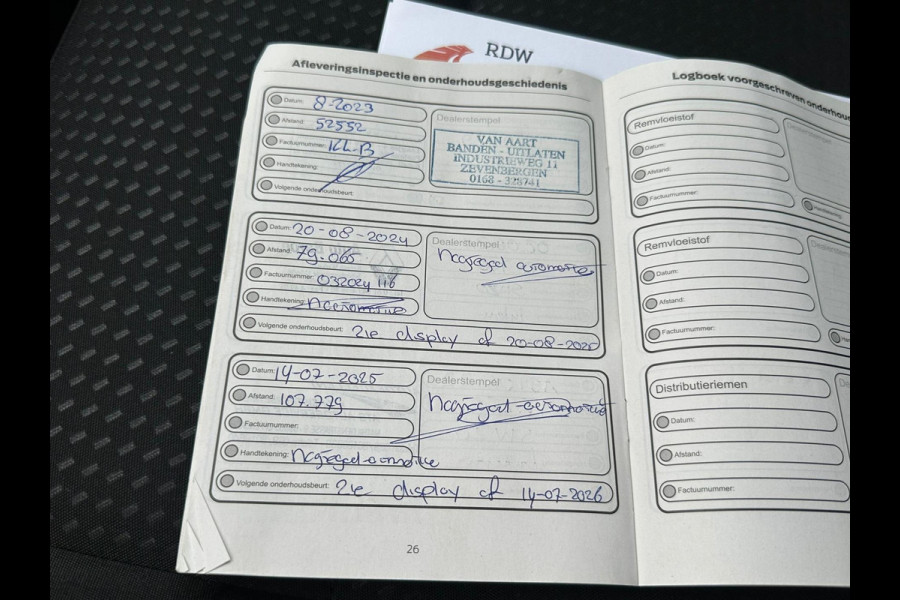 RDW
Afleveringsinspectie en onderhoudsgeschiedenis
Datum: 8-2023
Afstand: 52552
Factuurnummer:
Handtekening:
Volgende onderhoudsbeurt:
Dealerstempel
VAN AART
BANDEN - UITLATEN
INDUSTRIEWEG 11
ZEVENBERGEN
0168 - 328741
Datum: 20-08-2024
Afstand: 79.065
Factuurnummer: 032024 116
Handtekening:
Dealerstempel
Volgende onderhoudsbeurt: zie display of 20-08-2025
Datum: 14-07-2025
Afstand: 107.779
Factuurnummer:
Handtekening:
Dealerstempel
Volgende onderhoudsbeurt: zie display of 14-07-2026
26
Logboek voorgeschreven onderhou
Remvloeistof
Datum:
Afstand:
Factuurnummer:
Remvloeistof
Datum:
Afstand:
Factuurnummer:
Distributieriemen
Datum:
Afstand:
Factuurnummer: